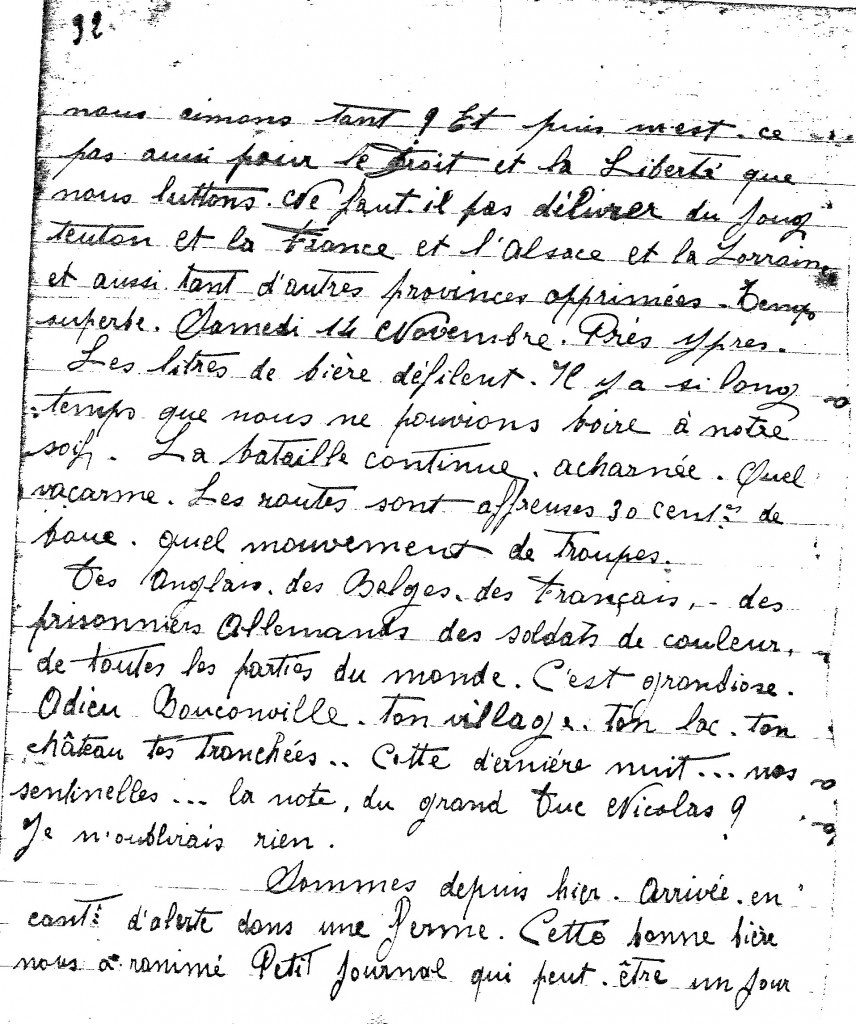 92.
nous aimons tant ? Et puis n'est-ce
pas aussi pour le Droit et la Liberté que
nous luttons. Ne faut-il pas délivrer du joug
teuton et la France et l'Alsace et la Lorraine
et aussi tant d'autres provinces opprimées - Temps
superbe. Samedi 14 Novembre. Près Ypres.
Les litres de bière défilent. Il y a si long
temps que nous ne pouvions boire à notre
soif. La bataille continue, acharnée. Quel
vacarme. Les routes sont affreuses 30 cent.es de
boue. quel mouvement de Troupes.
Des Anglais, des Belges, des Français, - des
prisonniers Allemands des soldats de couleur,
de toutes les parties du monde. C'est grandiose.
Adieu Bouconville. ton village. ton lac. ton
château tes tranchées.. Cette dernière nuit... nos
sentinelles... la note, du grand Duc Nicolas ?
Je n'oublirais rien.
Sommes depuis hier. Arrivée. en
cant.t d'alerte dans une ferme. Cette bonne bière
nous a ranimé Petit Journal qui peut-être un jour